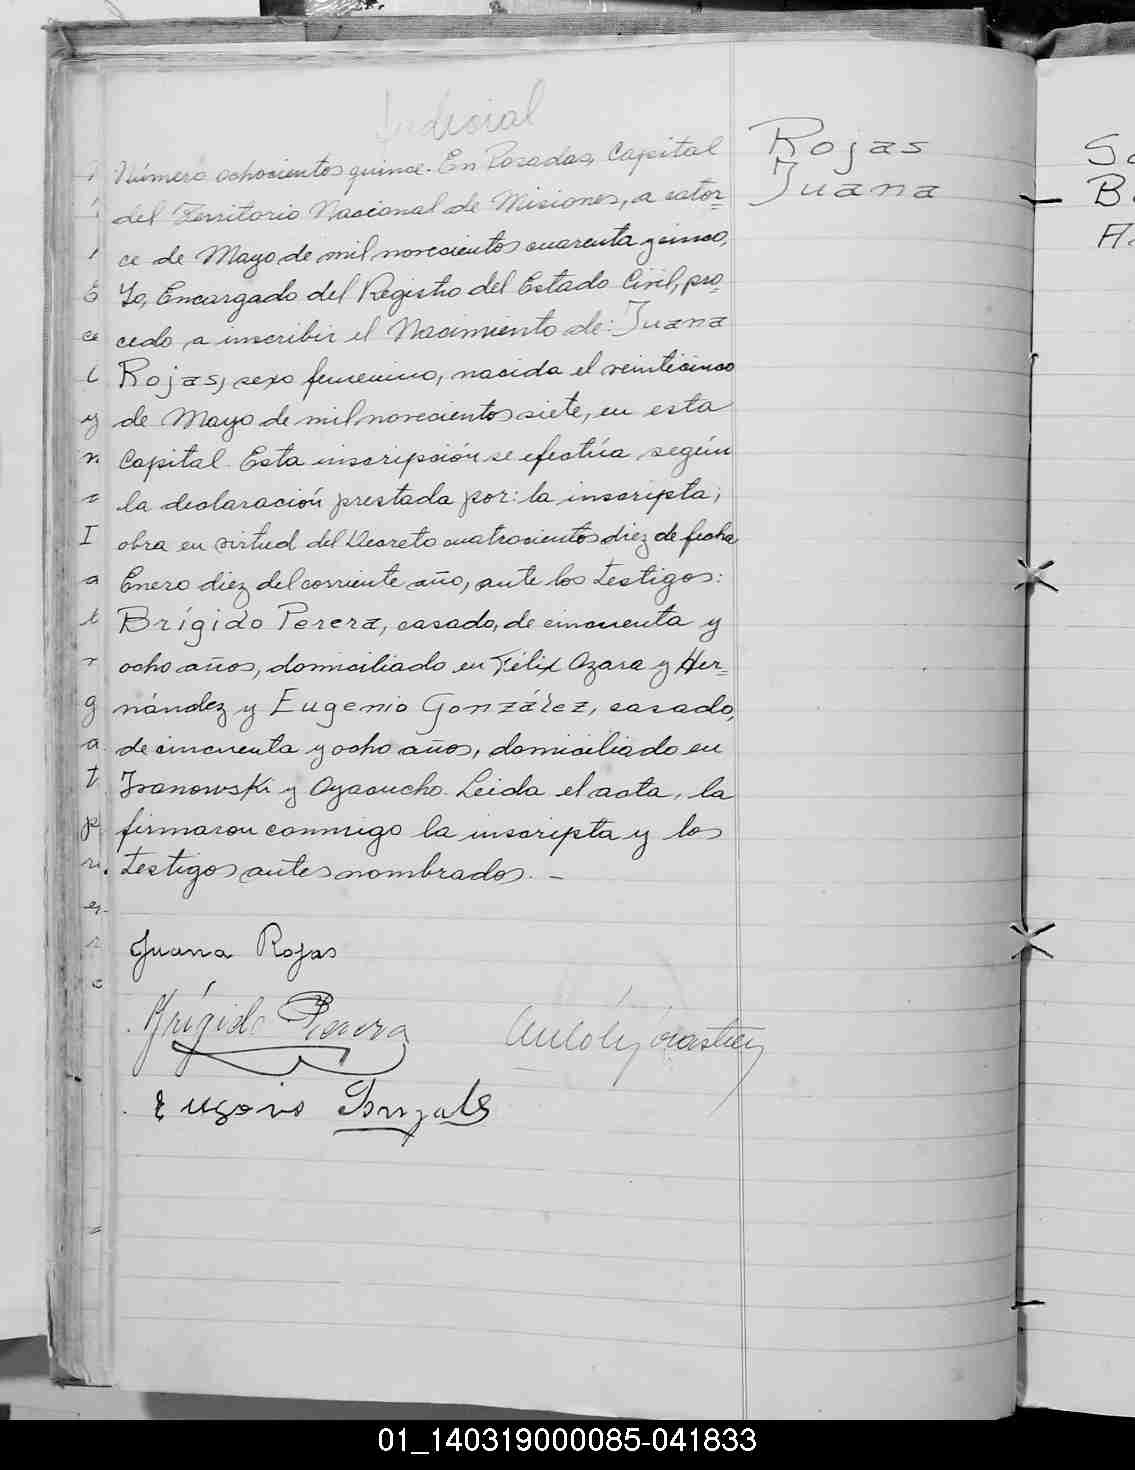 Judicial
Número ochocientos quince. En Posadas, Capital
del Territorio Nacional de Misiones, a cator=
ce de Mayo de mil novecientos cuarenta y cinco,
Yo, Encargado del Registro del Estado Civil, pro=
cedo a inscribir el Nacimiento de: Juana
Rojas, sexo femenino, nacida el veinticinco
de Mayo de mil novecientos siete, en esta
Capital. Esta inscripción se efectúa según
la declaración prestada por: la inscripta;
obra en virtud del Decreto cuatrocientos diez de fecha
Enero diez del corriente año, ante los testigos:
Brígido Perera, casado, de cincuenta y
ocho años, domiciliado en Félix Azara y Her=
nández y Eugenio González, casado,
de cincuenta y ocho años, domiciliado en
Ivanowski y Ayacucho. Leida el acta, la
firmaron conmigo la inscripta y los
testigos antes nombrados. —
Juana Rojas
Brígido Perera
Eugenio Gonzales
Rojas
Juana
01_140319000085-041833